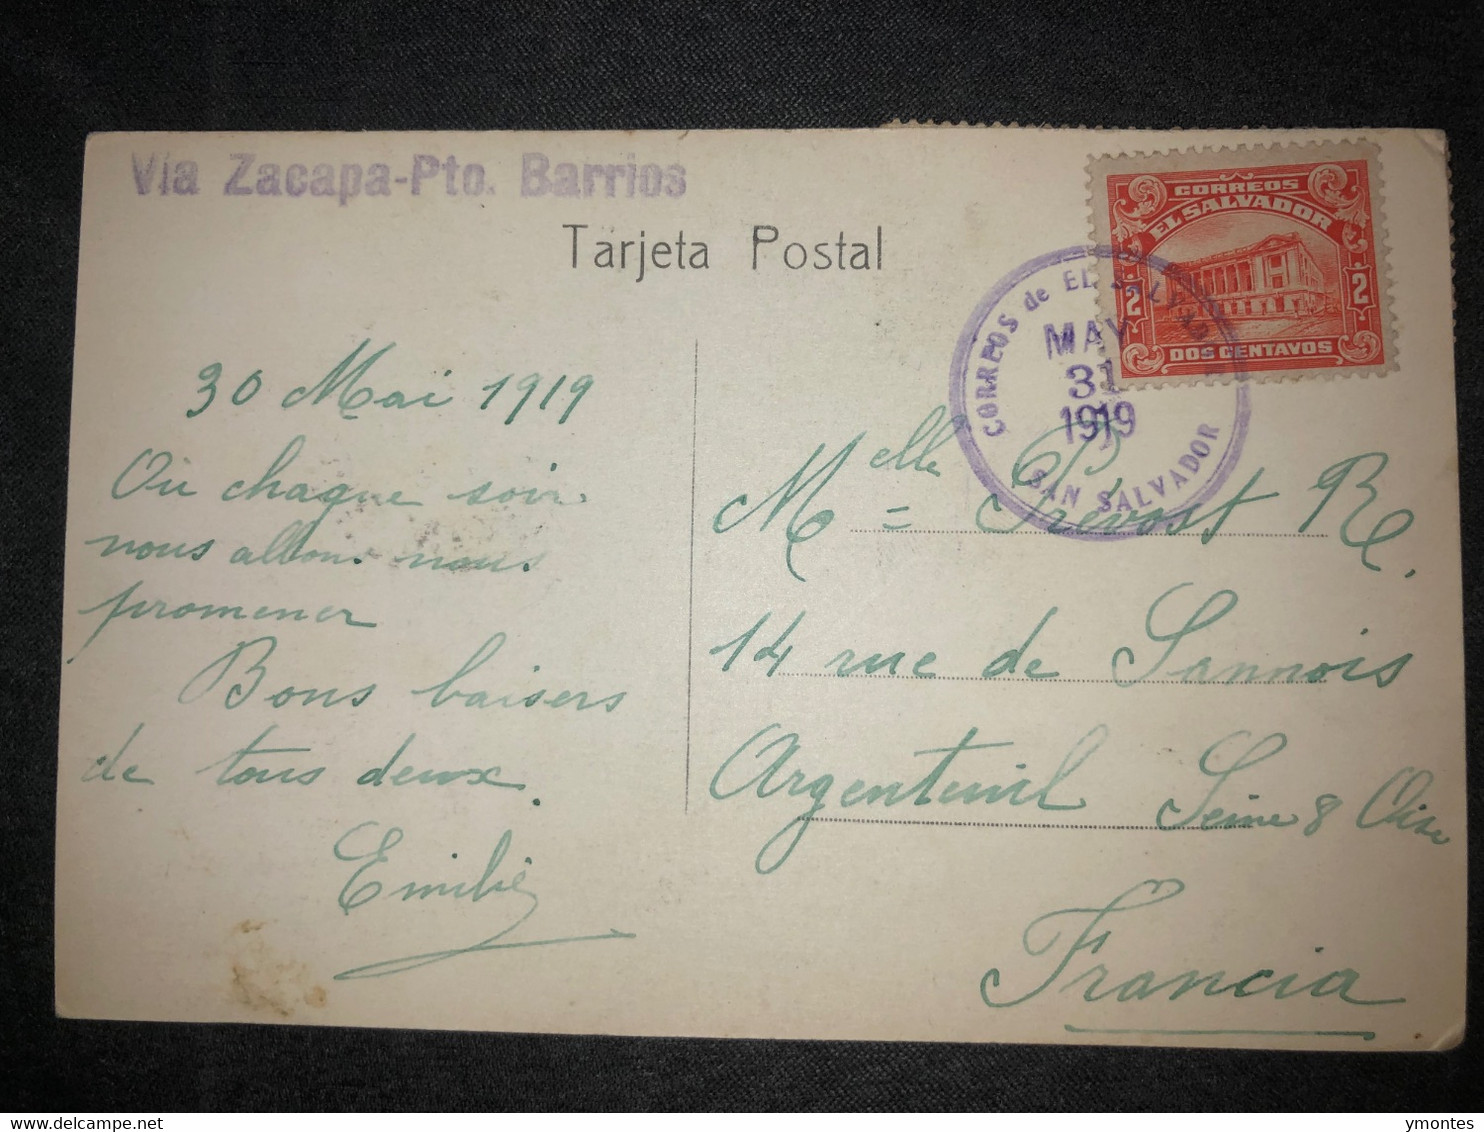 Via Zacapa-Pto. Barrios
Tarjeta Postal
CORREOS
EL SALVADOR
2 2
DOS CENTAVOS
CORREOS de EL SALVADOR
MAY
31
1919
SAN SALVADOR
30 Mai 1919
Où chaque soir
nous allons nous
promener
Bons baisers
de tous deux.
Emilie
Melle = Prévost R.
14 rue de Sannois
Argenteuil Seine & Oise
Francia
delcampe.net
ymontes